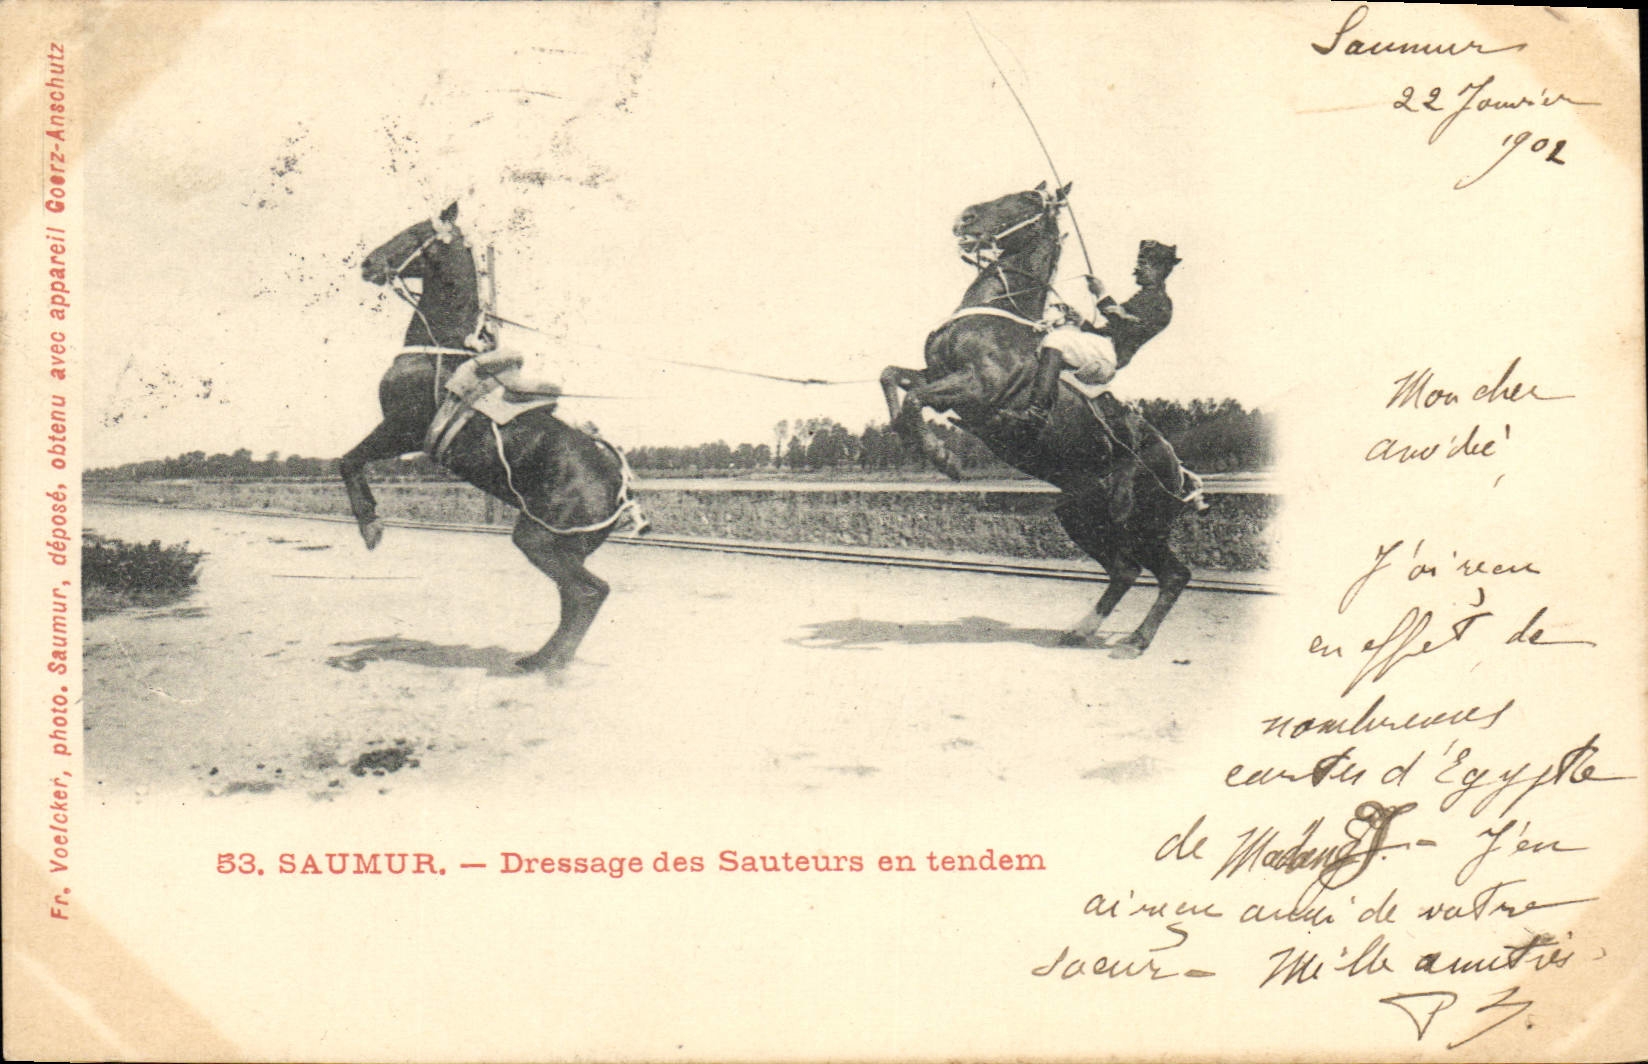 Fr. Voelcker, photo. Saumur, déposé, obtenu avec appareil Goerz-Anschutz
Saumur
22 Janvier
1902
Mon cher
J'ai reçu
en effet de
nombreuses
cartes d'Egypte
de J.- J'en
ai reçu aussi de votre
soeur - Mille amitiés
P
53. SAUMUR. — Dressage des Sauteurs en tendem